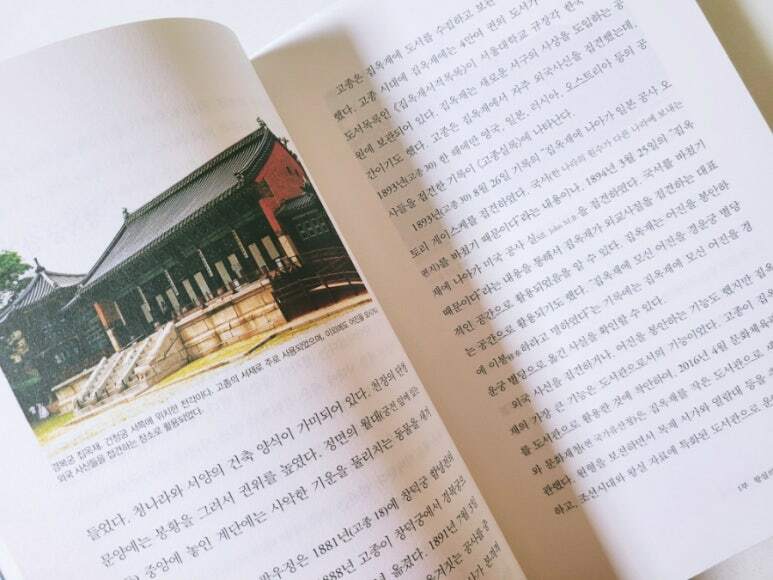 경복궁 집옥재. 건청궁 서쪽에 위치한 전각이다. 고종의 서재로 주로 사용되었으며, 이외에도 어진을 모시거
외국 사신들을 접견하는 장소로 활용되었다.
들었다. 청나라와 서양의 건축 양식이 가미되어 있다. 천장의 단청
문양에는 봉황을 그려서 권위를 높였다. 정면의 월대(궁전 앞에 있는
중앙에 놓인 계단에는 사악한 기운을 물리치는 동물을 새겨
1881년(고종 18)에 창덕궁 함녕전의
888년 고종이 창덕궁에서 경복궁으
옮겼다. 1891년 7월 13일
공사를
고종은 집옥재에 도서를 수집하고 보관
했다. 고종 시대에 집옥재에는 4만여 권의 도서가
도서목록인 《집옥재서적목록》이 서울대학교 규장각 한국
원에 보관되어 있다. 집옥재는 새로운 서구의 사상을 도입하는 공
간이기도 했다. 고종은 집옥재에서 자주 외국사신을 접견했는데,
1893년(고종 30) 한 해에만 영국, 일본, 러시아, 오스트리아 등의 공
사들을 접견한 기록이 《고종실록》에 나타난다.
1893년(고종 30) 8월 26일 기록의 "집옥재에 나아가 일본 공사 오
토리 게이스케를 접견하였다. 국서(한 나라의 원수가 다른 나라에 보내는
편지)를 바쳤기 때문이다"라는 내용이나, 1894년 4월 25일의 "집옥
재에 나아가 미국 공사 실(Sill, John M.B)을 접견하였다. 국서를 바쳤기
때문이다"라는 내용을 통해서 집옥재가 외교사절을 접견하는 대표
적인 공간으로 활용되었음을 알 수 있다. 집옥재는 어진을 봉안하
는 공간으로 활용되기도 했다. "집옥재에 모신 어진을 경운궁 별당
에 이봉하라고 명하였다"는 기록에는 집옥재에 모신 어진을 경
운궁 별당으로 옮긴 사실을 확인할 수 있다.
외국 사신을 접견하거나, 어진을 봉안하는 기능도 했지만 집옥
재의 가장 큰 기능은 도서관으로서의 기능이었다. 고종이 집옥
를 도서관으로 활용한 것에 착안하여, 2016년 4월 문화체육
와 문화재청(현 국가유산청)은 집옥재를 작은 도서관으로 새
관했다. 원형을 보전하면서 목재 서가와 열람대 등을
하고, 조선시대와 왕실 자료에 특화된 도서관으로 운
1부